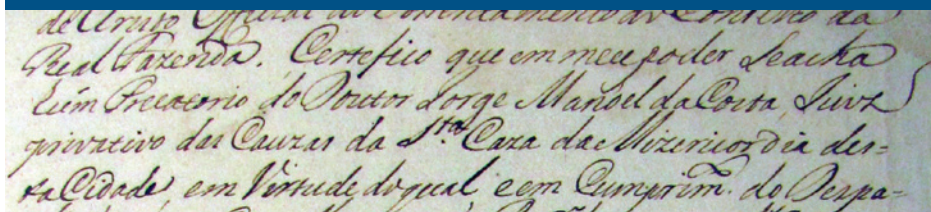 Official do Contencamento do Conselho da
Real Fazenda. Certefico que em meu poder Seacha
hum Precatorio do Doutor Jorge Manoel da Costa Juiz
privativo das Cauzas da S.ta Caza da Mizericordia des=
ta Cidade, em Virtude do qual, e em Cumprim. do Despa=